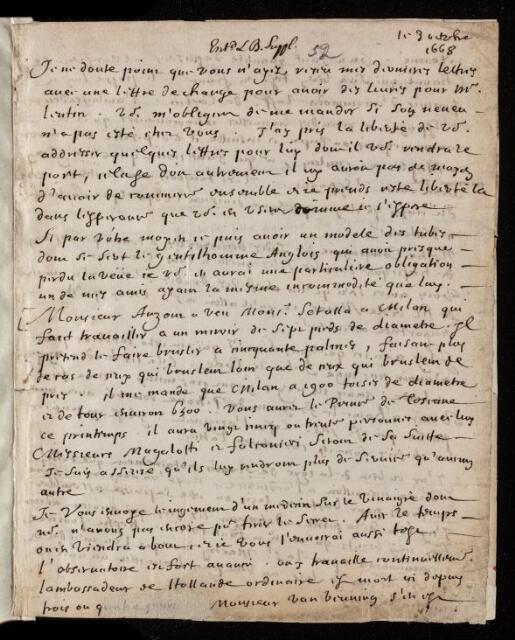 le 3 octobre
1668
Ent'd L B. Suppl.
52
Je ne doute point que vous n'ayez receu mes dernieres lettres
avec une lettre de change pour avoir des livres pour Mr.
. vo. m'obligera de me mander si son neveu
n'a pas esté chez vous. J'ay pris la liberté de vo.
addresser quelques lettres pour luy dont il vo. rendra le
port, autrement il luy auroit pas de moyen
d'avoir de commerce ensemble et ie prends cette liberté la
dans l'esperance que vo. en comme ie l'espere
Si par vôtre moyen ie puis avoir un modele des tubes
dont se sert le gentilhomme Anglois qui avoit presque
perdu la veüe ie vo. en aurai une particuliere obligation
un de mes amis ayant la mesme incommodité que luy.
Monsieur Auzout a veu Mons. Setalla a Milan qui
fait travailler a un miroir de sept pieds de diametre. Il
pretend le faire brusler a cinquante palmes, faisant plus
de cas de ceux qui bruslent loin que de ceux qui bruslent de
pres. il me mande que Milan a 1900 toises de diametre
et de tour environ 6500. Vous aurez le Prince de Toscane
ce printemps. il aura vingt cinq ou trente personnes avec luy
Messieurs Magalotti et falconieri seront de sa suitte
Je suis assuré qu'ils luy rendront plus de service qu'aucun
autre
Je vous envoye le iugement d'un medecin sur le vinaigre dont
no. n'avons pas encore pû le secret. Avec le temps
on en viendra a bout et ie vous l'envoierai aussi tost.
l'observatoire est fort avancé. on y travaille continuellement
l'ambassadeur de Hollande ordinaire est mort ici depuis
trois ou quatre jours Monsieur van beuning s'en va